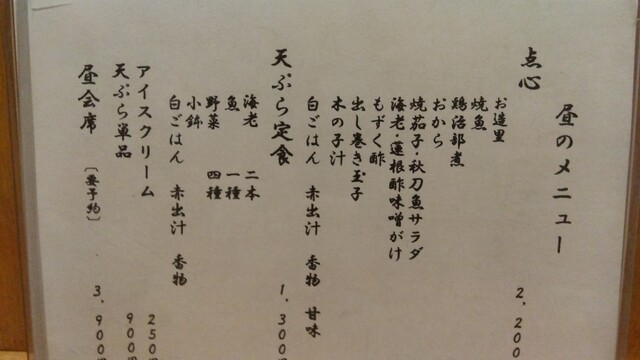 昼のメニュー
点心 2,200
お造里
焼魚
鶏治部煮
おから
焼茄子・秋刀魚サラダ
海老・蓮根酢味噌がけ
もずく酢
出し巻き玉子
木の子汁
白ごはん 赤出汁 香物 甘味
天ぷら定食 1,300円
海老 二本
魚 一種
野菜 四種
小鉢
白ごはん 赤出汁 香物
アイスクリーム 250円
天ぷら単品 900円
昼会席 〔要予約〕 3,900円